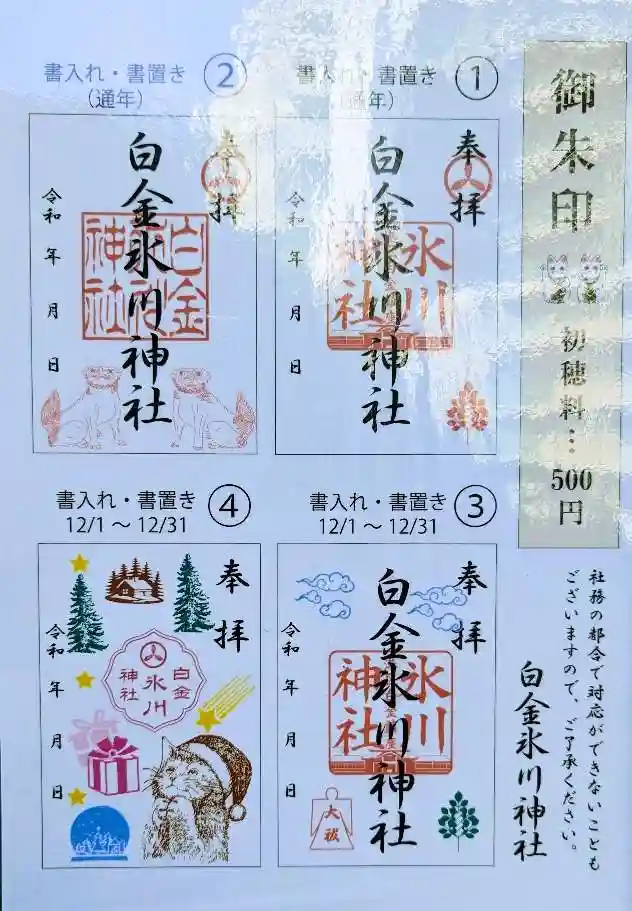 御朱印
初穂料…500円
社務の都合で対応ができないことも
ございますので、ご了承ください。
白金氷川神社
①
書入れ・書置き
(通年)
奉拝
白金氷川神社
氷川
神社
令和 年 月 日
②
書入れ・書置き
(通年)
奉拝
白金氷川神社
白金
神社
令和 年 月 日
③
書入れ・書置き
12/1 ~ 12/31
奉拝
白金氷川神社
氷川
神社
令和 年 月 日
大祓
④
書入れ・書置き
12/1 ~ 12/31
奉拝
白金
氷川
神社
令和 年 月 日